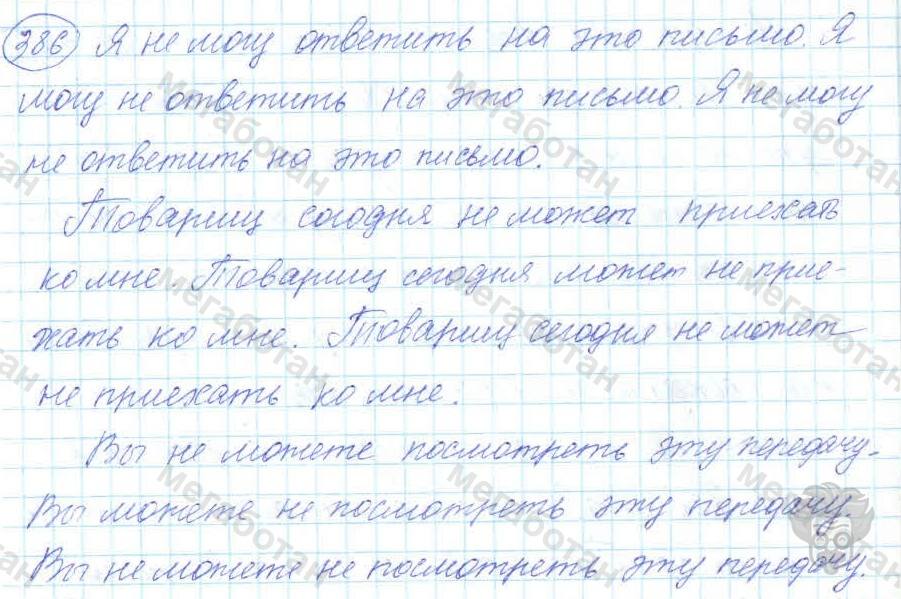 386 Я не могу ответить на это письмо. Я
могу не ответить на это письмо. Я не могу
не ответить на это письмо.
Товарищ сегодня не может приехать
ко мне. Товарищ сегодня может не прие-
хать ко мне. Товарищ сегодня не может
не приехать ко мне.
Вы не можете посмотреть эту передачу.
Вы можете не посмотреть эту передачу.
Вы не можете не посмотреть эту передачу.
Мегаботан
Мегаботан
Мегаботан
Мегаботан
Мегаботан
Мегаботан